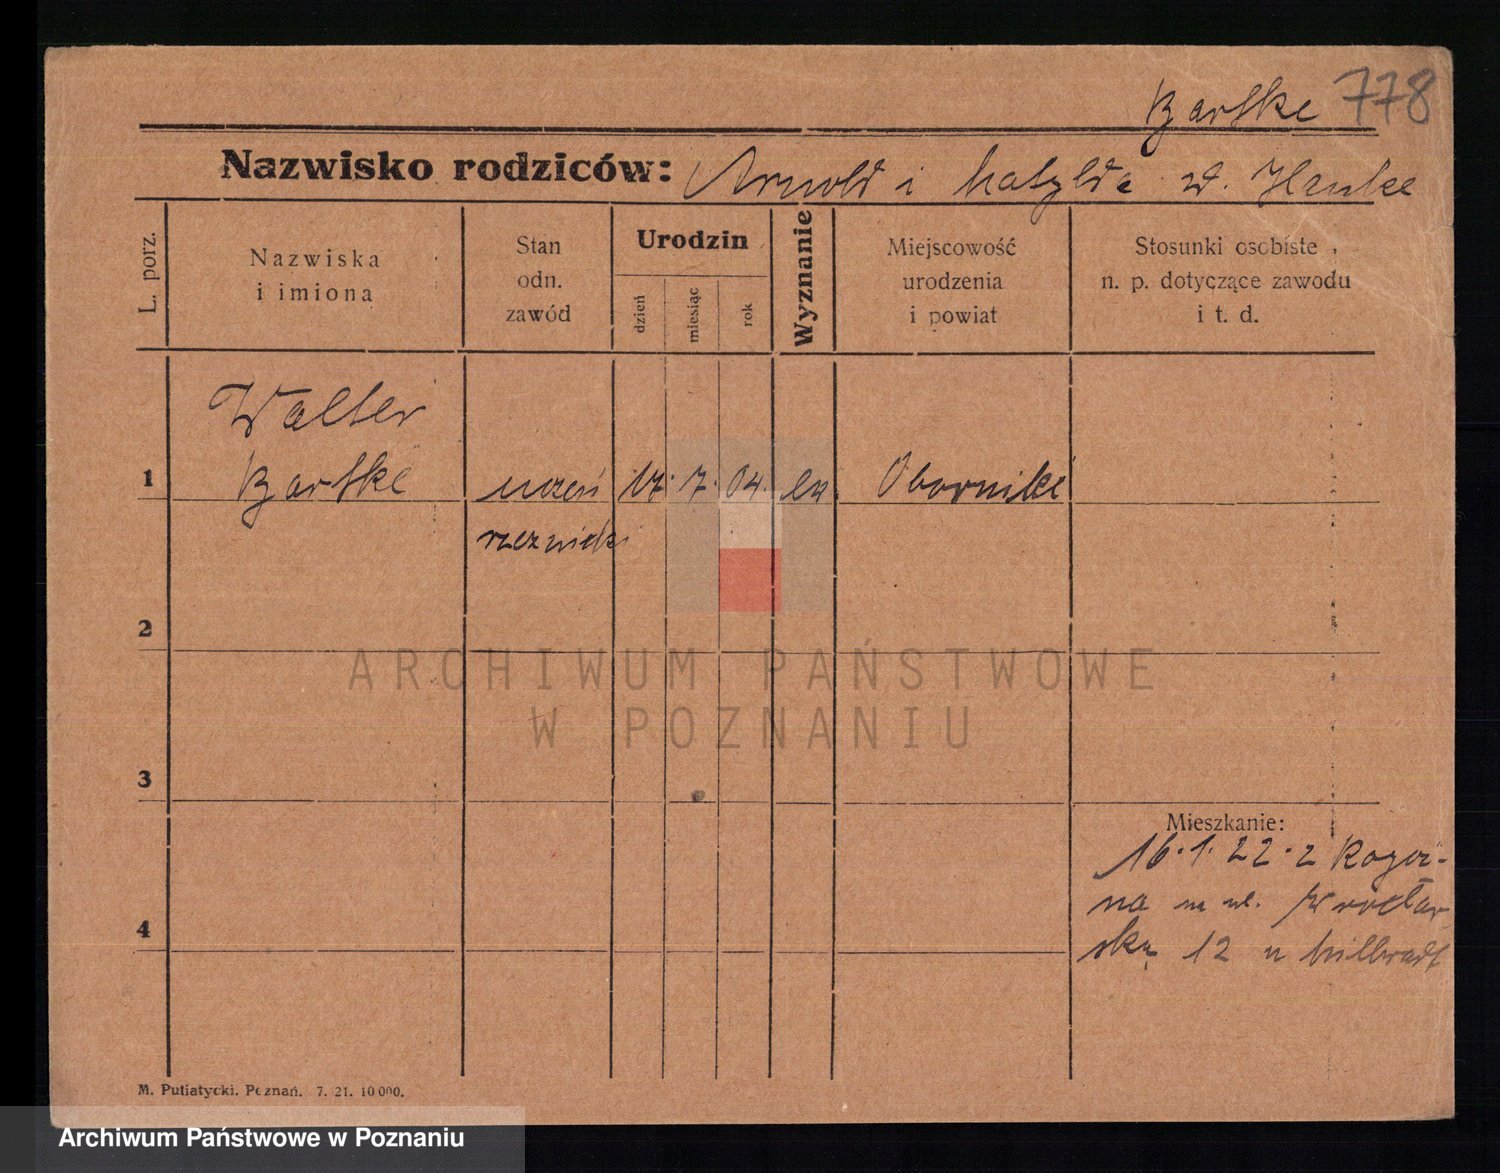 Bartke 778
Nazwisko rodziców: Arnold i Matylda d. Henke
L. porz.
Nazwiska
i imiona
Stan
odn.
zawód
Urodzin
dzień
miesiąc
rok
Wyznanie
Miejscowość
urodzenia
i powiat
Stosunki osobiste
n. p. dotyczące zawodu
i t. d.
Walter
1 Bartke uczeń 17. 7. 04. ew. Oborniki
rzeźnicki
2
3
Mieszkanie:
16.1.22. z Rogoź-
na na ul. Wrocław
4
ską 12 u
M. Putiatycki. Poznań. 7. 21. 10 000.
ARCHIWUM PAŃSTWOWE
W POZNANIU
Archiwum Państwowe w Poznaniu